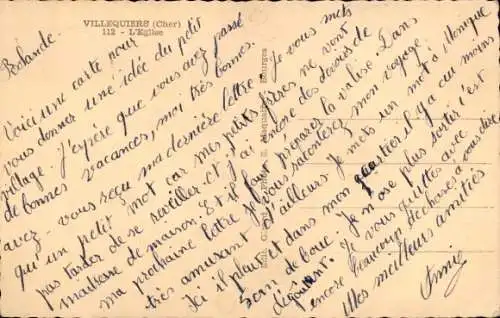 VILLEQUIERS (Cher)
112 - L'Eglise
Rolande.
Voici une carte pour
vous donner une idée du petit
village. J'espère que vous avez passé
de bonnes vacances, moi très bonnes.
avez-vous reçu ma dernière lettre
qu'un petit mot car mes petits frères ne vont
pas tarder de se réveiller et j'ai encore des devoirs de
maîtresse de maison. Et il faut préparer la valise. Dans
ma prochaine lettre je vous raconterez mon voyage
très amusant d'ailleurs. Je mets un mot à Monique
Ici il pleut et dans mon quartier il y a au moins
de boue. Je n'ose plus sortir c'est
dégoûtant. Je vous quitte avec
encore beaucoup de choses à vous dire
Mes meilleurs amitiés
Annie
Je vous mets